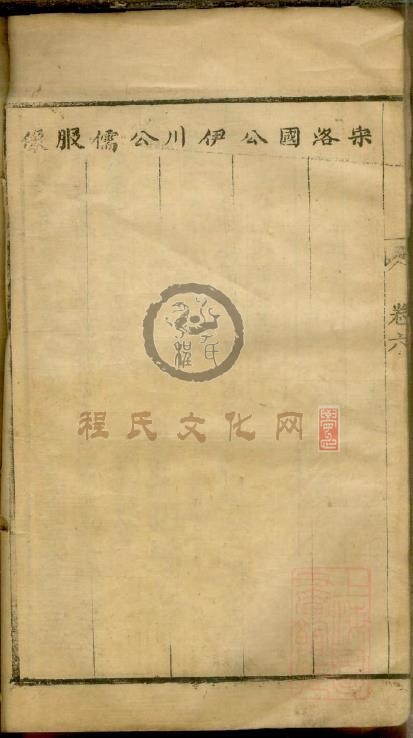 宋洛國公伊川公儒服像
卷六
程氏
程氏文化网